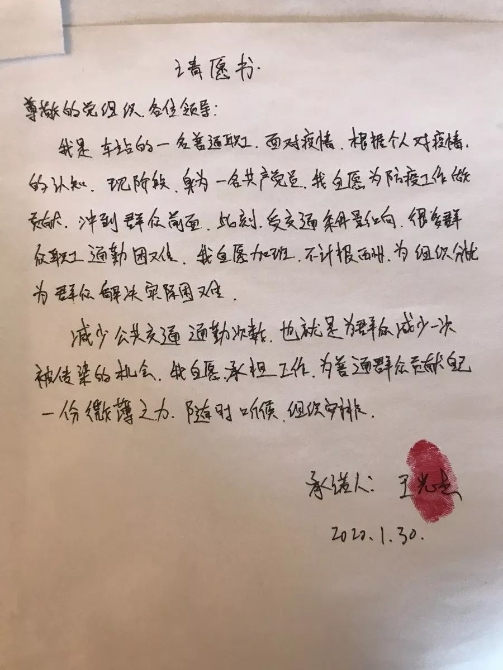 请愿书
尊敬的党组织各位领导:
我是车站的一名普通职工,面对疫情,根据个人对疫情,
的认知,现阶段,身为一名共产党员,我自愿为防疫工作做
贡献,冲到群众前面,此刻,受交通条件影响,很多群
众职工通勤困难,我自愿加班,不计报酬,为组织分忧
为群众解决实际困难.
减少公共交通通勤次数,也就是为群众减少一次
被传染的机会,我自愿承担工作,为普通群众贡献自己
一份微薄之力,随时听候,组织安排.
承诺人:王
2020.1.30.